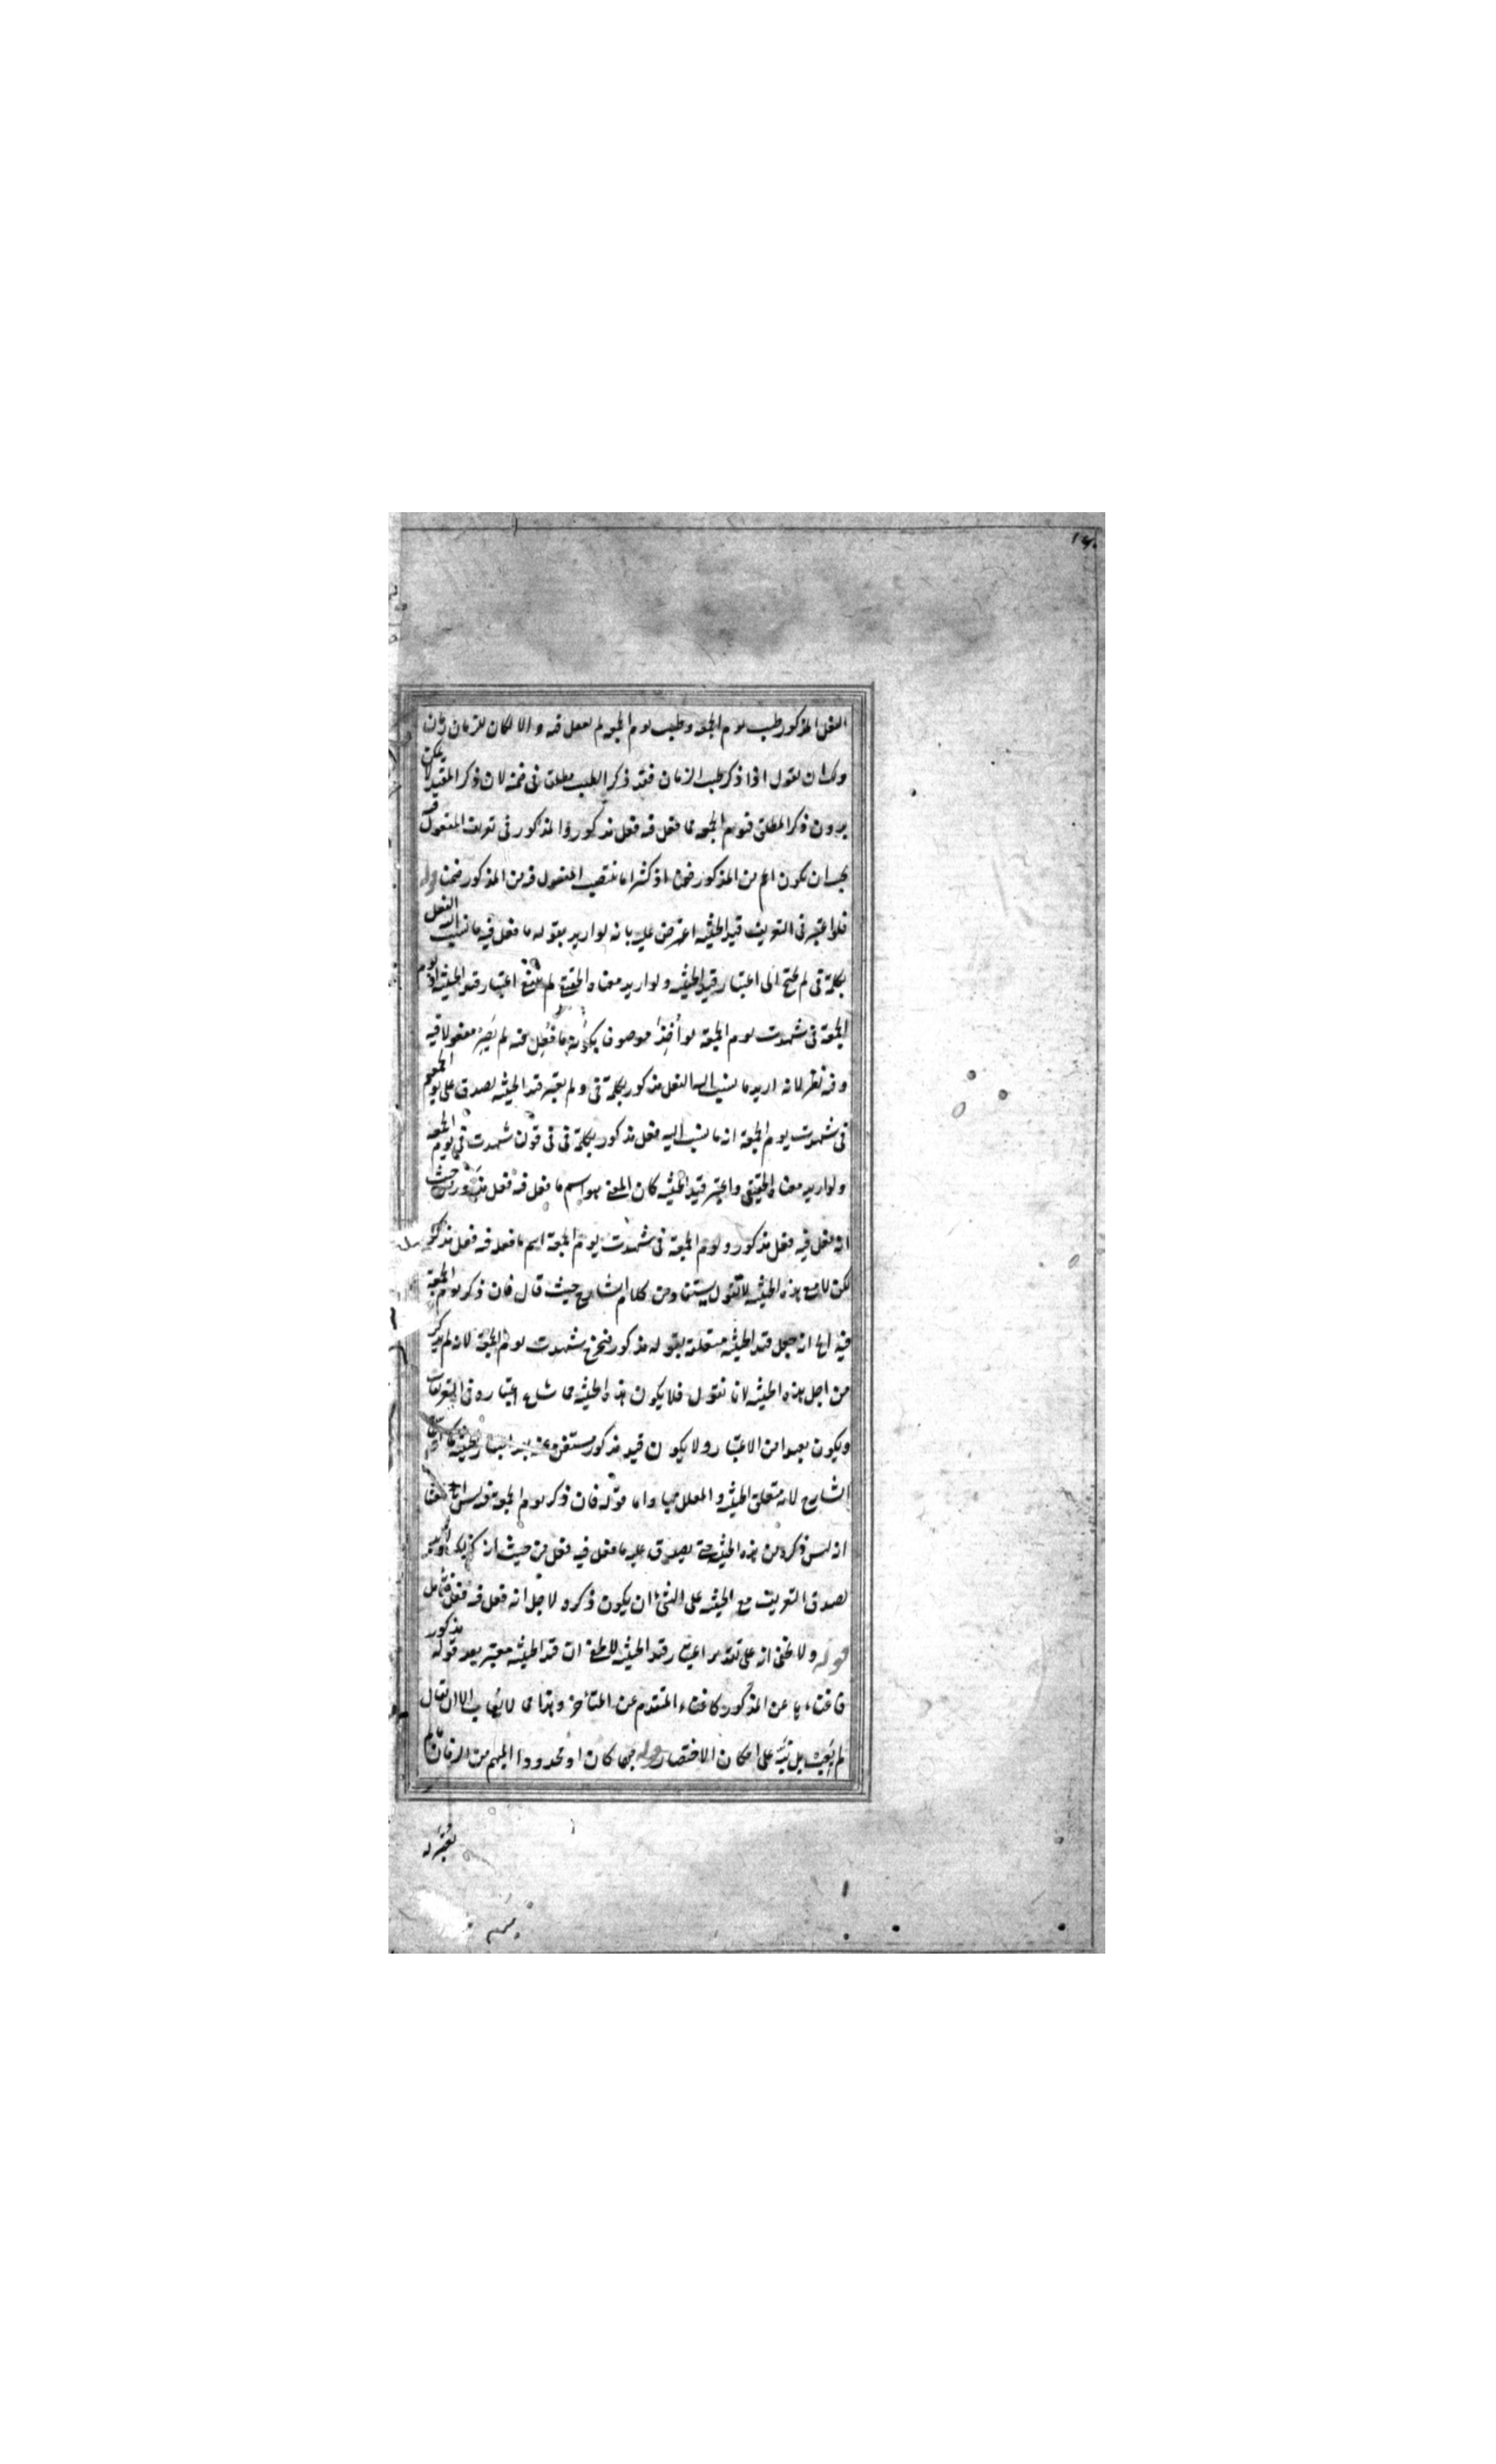 الفعل المذكور طيب يوم الجمعة وطيب يوم الجمعة لم يفعل فيه والا لكان للزمان زمان
ولك ان تقول اذا ذكر طيب الزمان فقد ذكر الطيب مطلقا في ضمنه لان ذكر المقيد لا يمكن
بدون ذكر المطلق فيوم الجمعة مما فعل فيه فعل مذكور والمذكور في تعريف المفعول فيه
يجب ان يكون اعم من المذكور ضمنا اذ كثيرا ما ينتصب المفعول فيه من المذكور ضمنا قوله
فلو اعتبر في التعريف قيد الحيثية اعترض عليه بانه لو اريد بقوله ما فعل فيه ما نسب اليه الفعل
بكلمة في لم يحتج الى اعتبار قيد الحيثية ولو اريد معناه الحقيقي لم ينفع اعتبار قيد الحيثية اذ يوم
الجمعة في شهدت يوم الجمعة لو أخذ موصوفا بكونه ما فعل فيه لم يصر مفعولا فيه
وفيه نظر لانه اريد ما ينسب اليه الفعل مذكور بكلمة في ولم يعتبر قيد الحيثية لصدق على يوم الجمعة
في شهدت يوم الجمعة انه ما ينسب اليه فعل مذكور بكلمة في في قولنا شهدت في يوم الجمعة
ولو اريد معناه الحقيقي واعتبر قيد الحيثية كان المعنى هو اسم ما فعل فيه فعل مذكور من حيث
انه فعل فيه فعل مذكور ويوم الجمعة في شهدت يوم الجمعة اسم ما فعل فيه فعل مذكور
لكن لا مع هذه الحيثية لا تقول يستفاد من كلام الشارح حيث قال فان ذكر يوم الجمعة
فيه الخ انه جعل قيد الحيثية متعلقة بقوله مذكور فيخرج شهدت يوم الجمعة لانه لم يذكر
من اجل هذه الحيثية لانا نقول فلا يكون هذه الحيثية مما شاع اعتباره في التعريفات
ويكون بعيدا من الاعتبار ولا يكون قيد مذكور مستغنى عنه بعد اعتبار الحيثية
الشارح لانه متعلق الحيثية والمعلل بها واما قوله فان ذكر يوم الجمعة فيه ليس الخ
انه ليس ذكره من هذه الحيثية حتى يصدق عليه ما فعل فيه فعل من حيث انه كذلك
لصدق التعريف مع الحيثية على الشيء ان يكون ذكره لاجل انه فعل فيه فعل فتأمل
قوله ولا يخفى انه على تقدير اعتبار قيد الحيثية ان قيد الحيثية معتبر بعد قوله مذكور
فاغناء ها عن المذكور كاغناء المتقدم عن المتأخر وهذا مما لا يعاب الا ان يقال
لم يعب بل نبه على امكان الاختصار قوله مبهما كان او محدودا المبهم من الزمان ما لم
يعتبر له